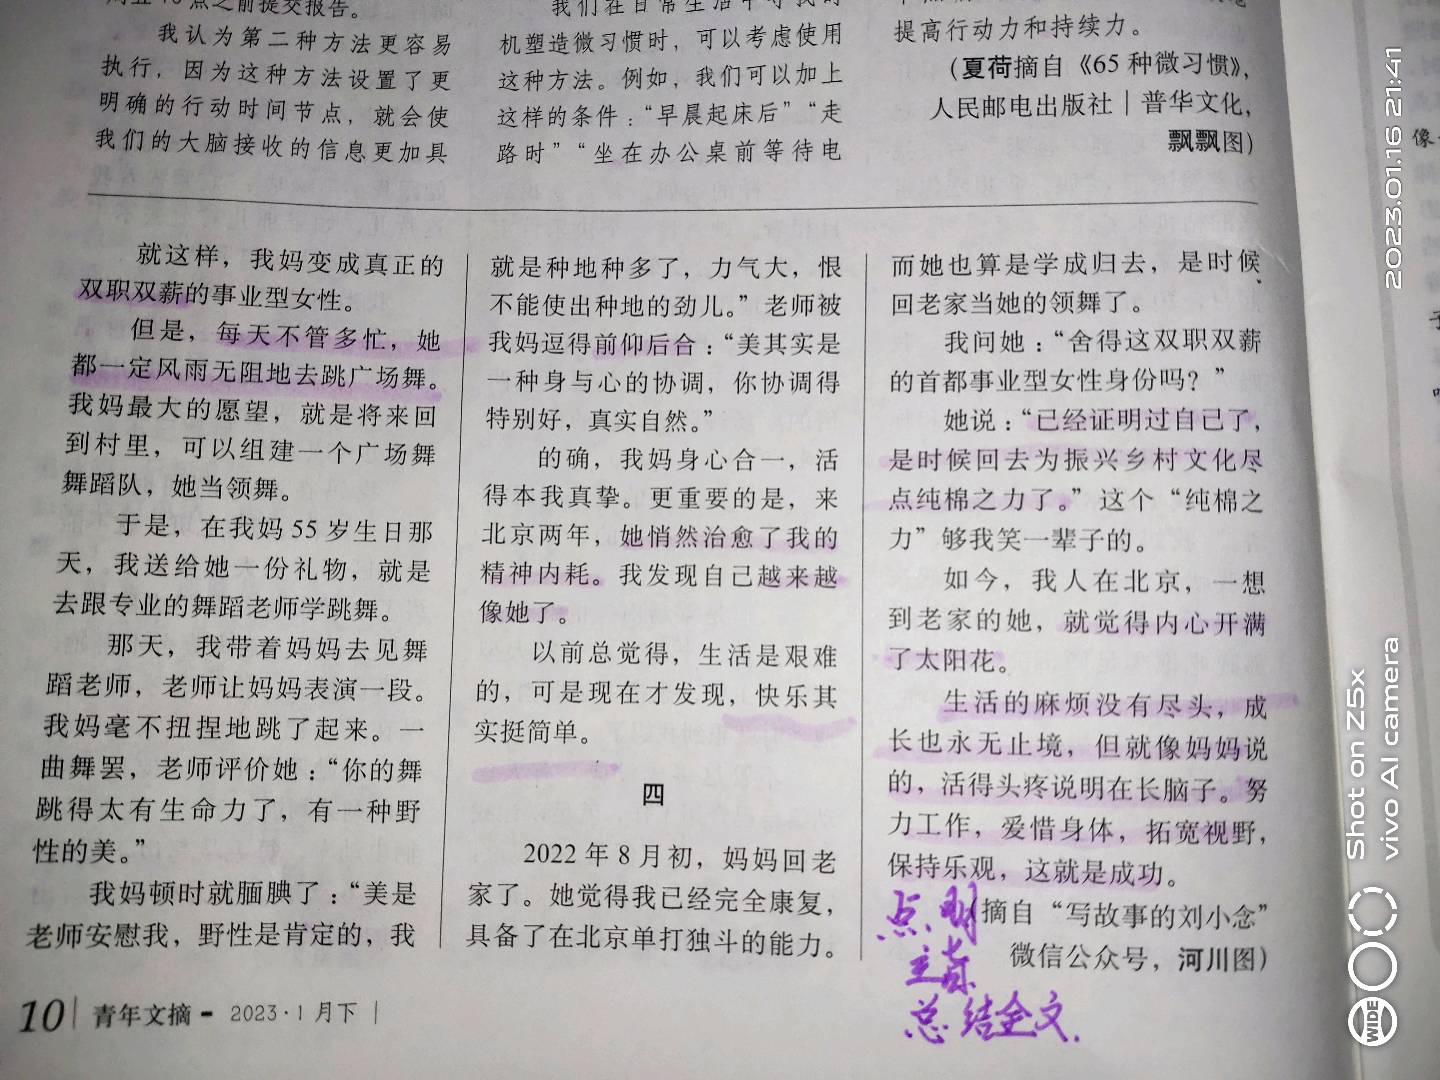 我认为第二种方法更容易
执行，因为这种方法设置了更
明确的行动时间节点，就会使
我们的大脑接收的信息更加具
机塑造微习惯时，可以考虑使用
这种方法。例如，我们可以加上
这样的条件：“早晨起床后”“走
路时”“坐在办公桌前等待电
提高行动力和持续力。
（夏荷摘自《65 种微习惯》，
人民邮电出版社｜普华文化，
飘飘图）
就这样，我妈变成真正的
双职双薪的事业型女性。
但是，每天不管多忙，她
都一定风雨无阻地去跳广场舞。
我妈最大的愿望，就是将来回
到村里，可以组建一个广场舞
舞蹈队，她当领舞。
于是，在我妈 55 岁生日那
天，我送给她一份礼物，就是
去跟专业的舞蹈老师学跳舞。
那天，我带着妈妈去见舞
蹈老师，老师让妈妈表演一段。
我妈毫不扭捏地跳了起来。一
曲舞罢，老师评价她：“你的舞
跳得太有生命力了，有一种野
性的美。”
我妈顿时就腼腆了：“美是
老师安慰我，野性是肯定的，我
就是种地种多了，力气大，恨
不能使出种地的劲儿。”老师被
我妈逗得前仰后合：“美其实是
一种身与心的协调，你协调得
特别好，真实自然。”
的确，我妈身心合一，活
得本我真挚。更重要的是，来
北京两年，她悄然治愈了我的
精神内耗。我发现自己越来越
像她了。
以前总觉得，生活是艰难
的，可是现在才发现，快乐其
实挺简单。
四
2022 年 8 月初，妈妈回老
家了。她觉得我已经完全康复，
具备了在北京单打独斗的能力。
而她也算是学成归去，是时候
回老家当她的领舞了。
我问她：“舍得这双职双薪
的首都事业型女性身份吗？”
她说：“已经证明过自己了，
是时候回去为振兴乡村文化尽
点纯棉之力了。”这个“纯棉之
力”够我笑一辈子的。
如今，我人在北京，一想
到老家的她，就觉得内心开满
了太阳花。
生活的麻烦没有尽头，成
长也永无止境，但就像妈妈说
的，活得头疼说明在长脑子。努
力工作，爱惜身体，拓宽视野，
保持乐观，这就是成功。
（摘自“写故事的刘小念”
微信公众号，河川图）
点明
主旨
总结全文.
10 | 青年文摘 - 2023·1 月下 |
2023.01.16 21:41
Shot on Z5x
vivo AI camera
WIDE